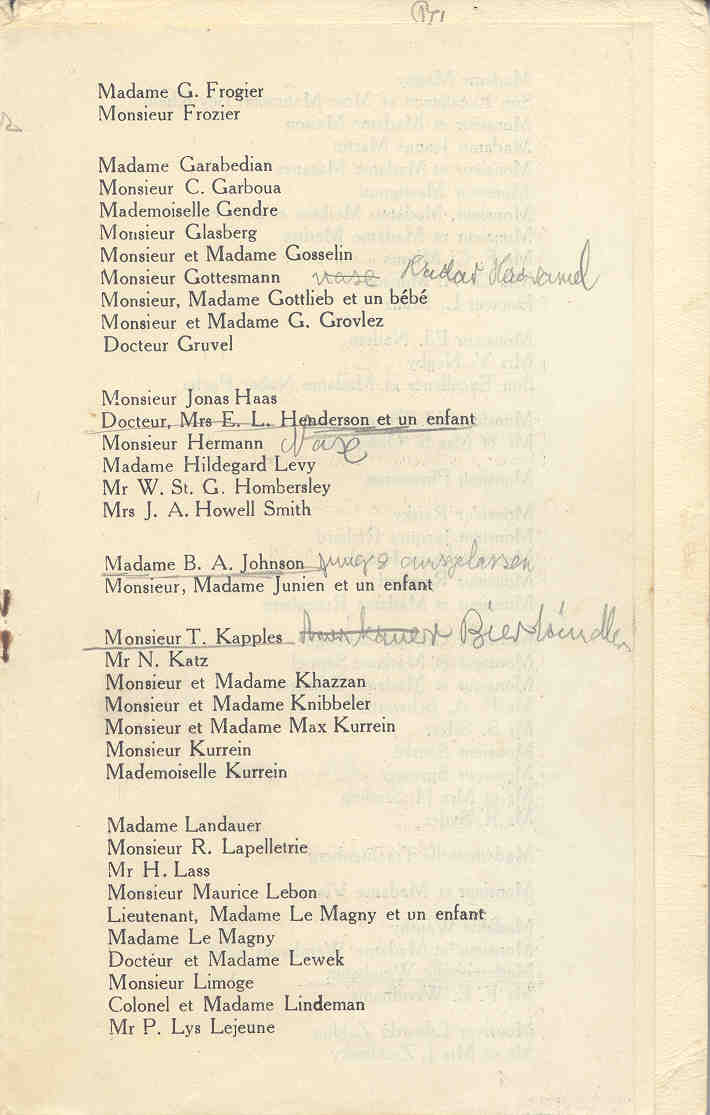 Madame G. Frogier
Monsieur Frozier
Madame Garabedian
Monsieur C. Garboua
Mademoiselle Gendre
Monsieur Glasberg
Monsieur et Madame Gosselin
Monsieur Gottesmann
Monsieur, Madame Gottlieb et un bébé
Monsieur et Madame G. Grovlez
Docteur Gruvel
Monsieur Jonas Haas
Docteur, Mrs E. L. Henderson et un enfant
Monsieur Hermann Nase
Madame Hildegard Levy
Mr W. St. G. Hombersley
Mrs J. A. Howell Smith
Madame B. A. Johnson ausgelassen
Monsieur, Madame Junien et un enfant
Monsieur T. Kapples Amerikaner
Mr N. Katz
Monsieur et Madame Khazzan
Monsieur et Madame Knibbeler
Monsieur et Madame Max Kurrein
Monsieur Kurrein
Mademoiselle Kurrein
Madame Landauer
Monsieur R. Lapelletrie
Mr H. Lass
Monsieur Maurice Lebon
Lieutenant, Madame Le Magny et un enfant
Madame Le Magny
Docteur et Madame Lewek
Monsieur Limoge
Colonel et Madame Lindeman
Mr P. Lys Lejeune